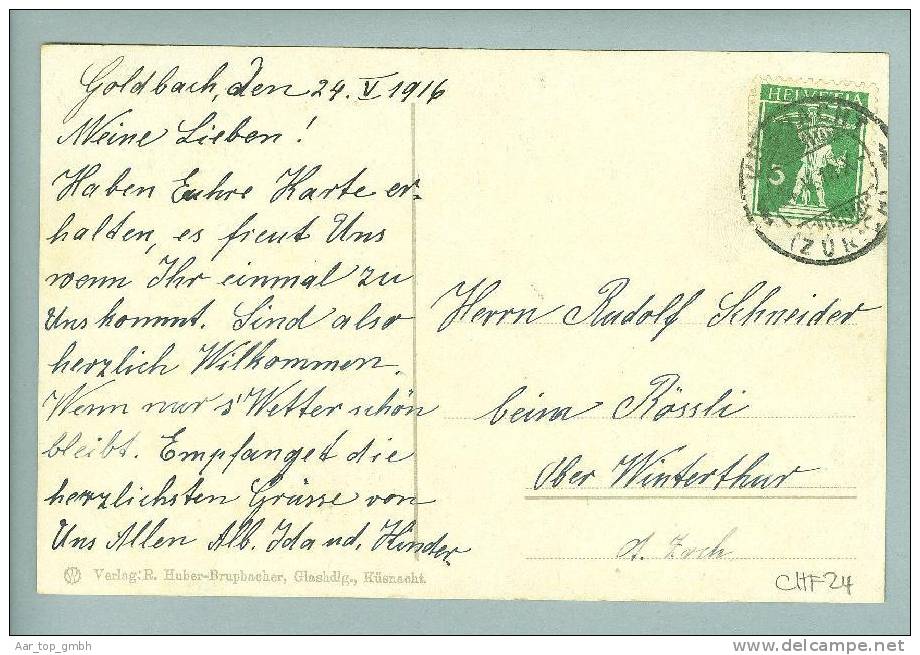 Goldbach, den 24. V 1916
Meine Lieben!
Haben Euhre Karte er-
halten, es freut Uns
wenn Ihr einmal zu
Uns kommt. Sind also
herzlich Wilkommen.
Wenn nur s'Wetter schön
bleibt. Empfanget die
herzlichsten Grüsse von
Uns Allen Alb. Ida und. Kinder
Verlag: R. Huber-Brupbacher, Glashdlg., Küsnacht.
HELVETIA
5
(ZÜRICH)
Herrn Rudolf Schneider
beim Rössli
Ober Winterthur
CHF 24
Aar_top_gmbh
www.delcampe.net